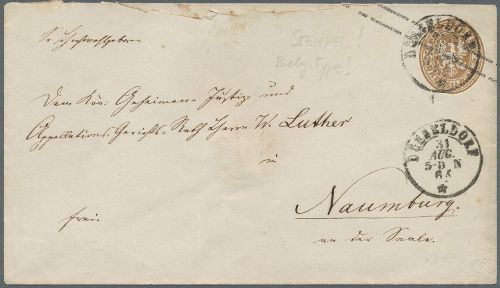 STEMPEL!
Belg. Type!
DÜSSELDORF
Sr. Hochwohlgeboren
Dem Kön. Geheimen Justiz und
Appellations Gerichts-Rath Herrn W. Luther
DÜSSELDORF
31
AUG.
5-8 N
64
in
Naumburg.
frei.
an der Saale.